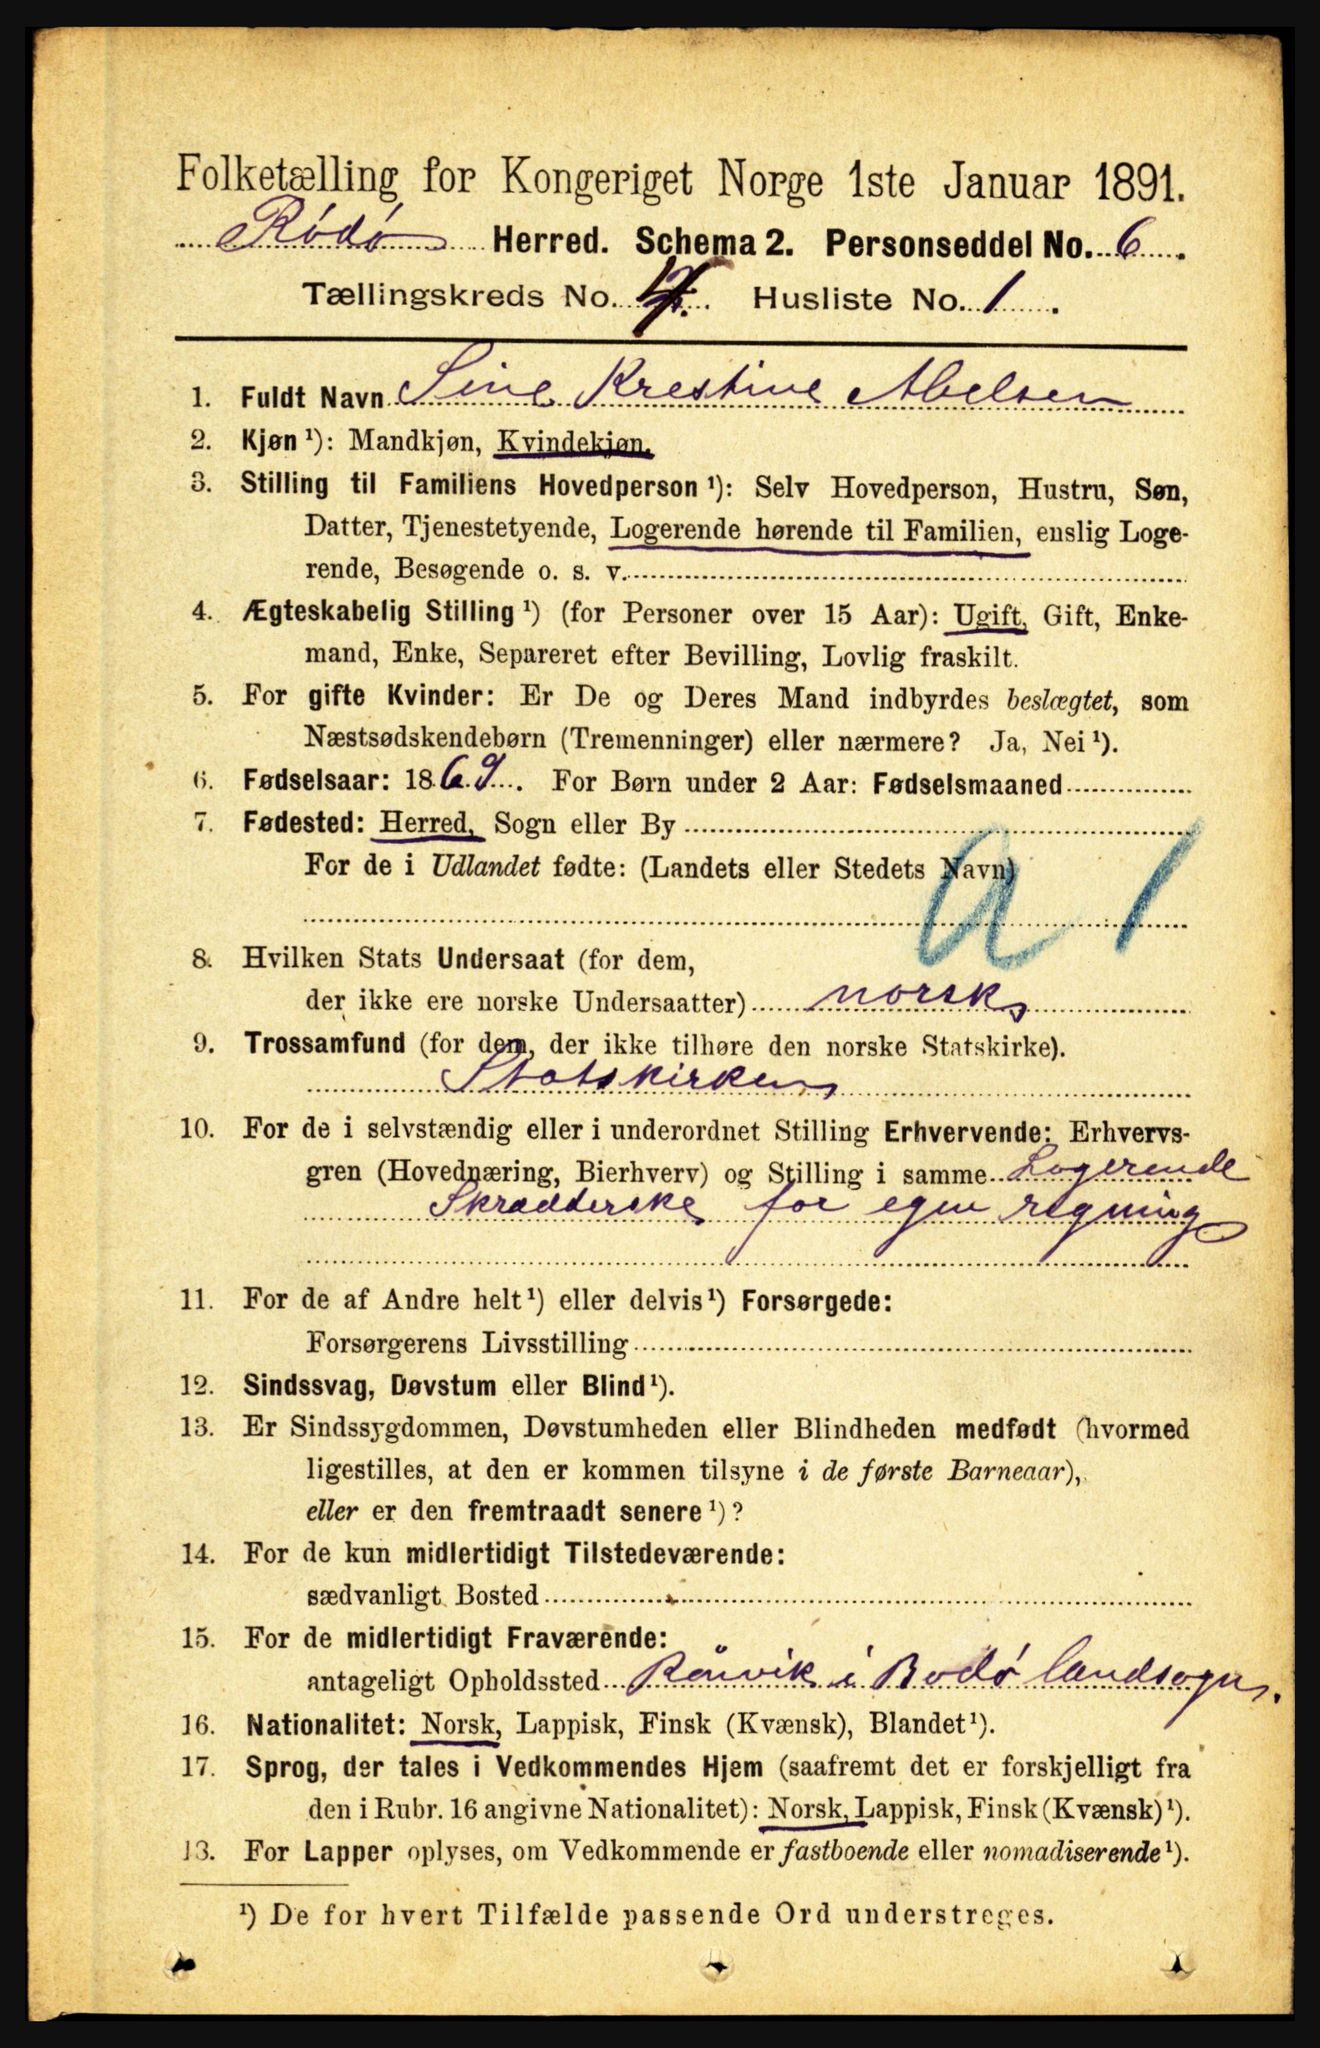 Folketælling for Kongeriget Norge 1ste Januar 1891.
Rödö Herred. Schema 2. Personseddel No. 6.
Tællingskreds No. Husliste No. 1.
1. Fuldt Navn Sine Krestine Abelsen
2. Kjøn ¹): Mandkjøn, Kvindekjøn.
3. Stilling til Familiens Hovedperson ¹): Selv Hovedperson, Hustru, Søn,
Datter, Tjenestetyende, Logerende hørende til Familien, enslig Loge-
rende, Besøgende o. s. v.
4. Ægteskabelig Stilling ¹) (for Personer over 15 Aar): Ugift, Gift, Enke-
mand, Enke, Separeret efter Bevilling, Lovlig fraskilt.
5. For gifte Kvinder: Er De og Deres Mand indbyrdes beslægtet, som
Næstsødskendebørn (Tremenninger) eller nærmere? Ja, Nei ¹).
6. Fødselsaar: 1869. For Børn under 2 Aar: Fødselsmaaned
7. Fødested: Herred, Sogn eller By
For de i Udlandet fødte: (Landets eller Stedets Navn)
a 1
8. Hvilken Stats Undersaat (for dem,
der ikke ere norske Undersaatter) norsk
9. Trossamfund (for dem, der ikke tilhøre den norske Statskirke).
Statskirken
10. For de i selvstændig eller i underordnet Stilling Erhvervende: Erhvervs-
gren (Hovednæring, Bierhverv) og Stilling i samme Logerende
Skrædderske for egen regning
11. For de af Andre helt ¹) eller delvis ¹) Forsørgede:
Forsørgerens Livsstilling
12. Sindssvag, Døvstum eller Blind ¹).
13. Er Sindssygdommen, Døvstumheden eller Blindheden medfødt (hvormed
ligestilles, at den er kommen tilsyne i de første Barneaar),
eller er den fremtraadt senere ¹)?
14. For de kun midlertidigt Tilstedeværende:
sædvanligt Bosted
15. For de midlertidigt Fraværende:
antageligt Opholdssted Rönvik i Bodö landsogn.
16. Nationalitet: Norsk, Lappisk, Finsk (Kvænsk), Blandet ¹).
17. Sprog, der tales i Vedkommendes Hjem (saafremt det er forskjelligt fra
den i Rubr. 16 angivne Nationalitet): Norsk, Lappisk, Finsk (Kvænsk) ¹).
18. For Lapper oplyses, om Vedkommende er fastboende eller nomadiserende ¹).
¹) De for hvert Tilfælde passende Ord understreges.